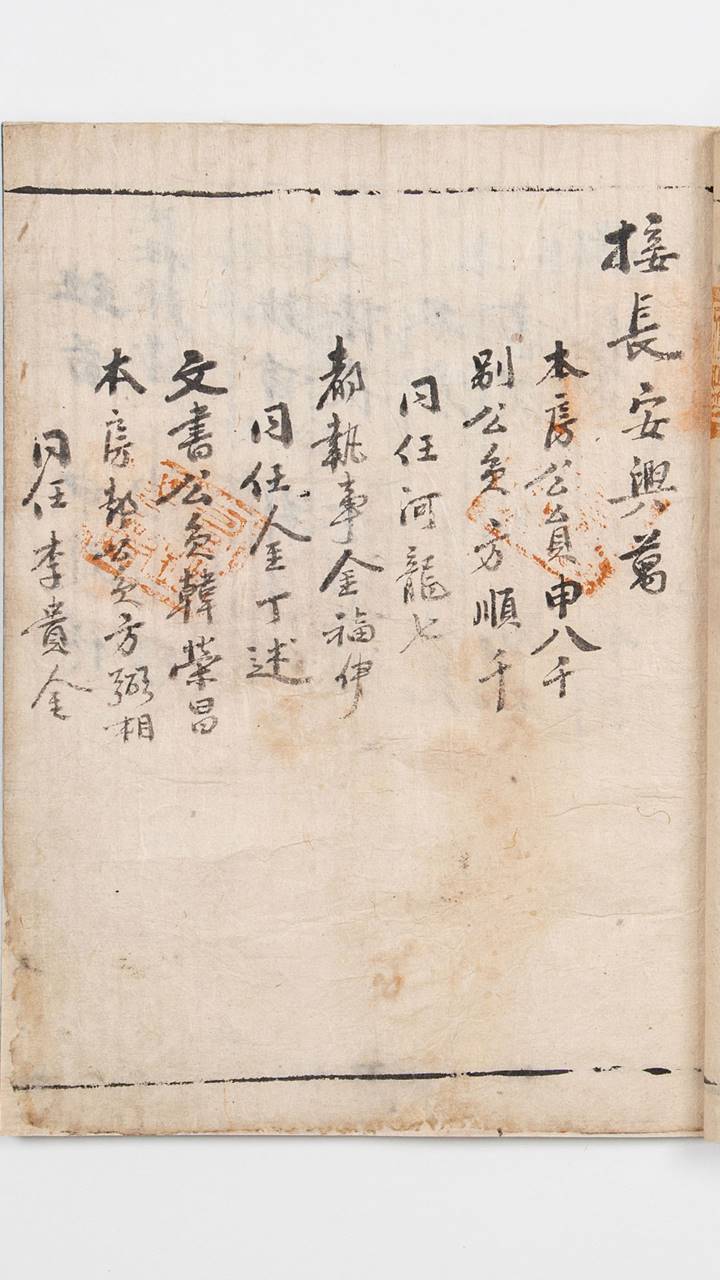 接長安興萬
本房公員申八千
別公員方順千
同任河龍七
都執事金福伊
同任金丁述
文書公員韓榮昌
本房都公員方弼相
同任李貴金